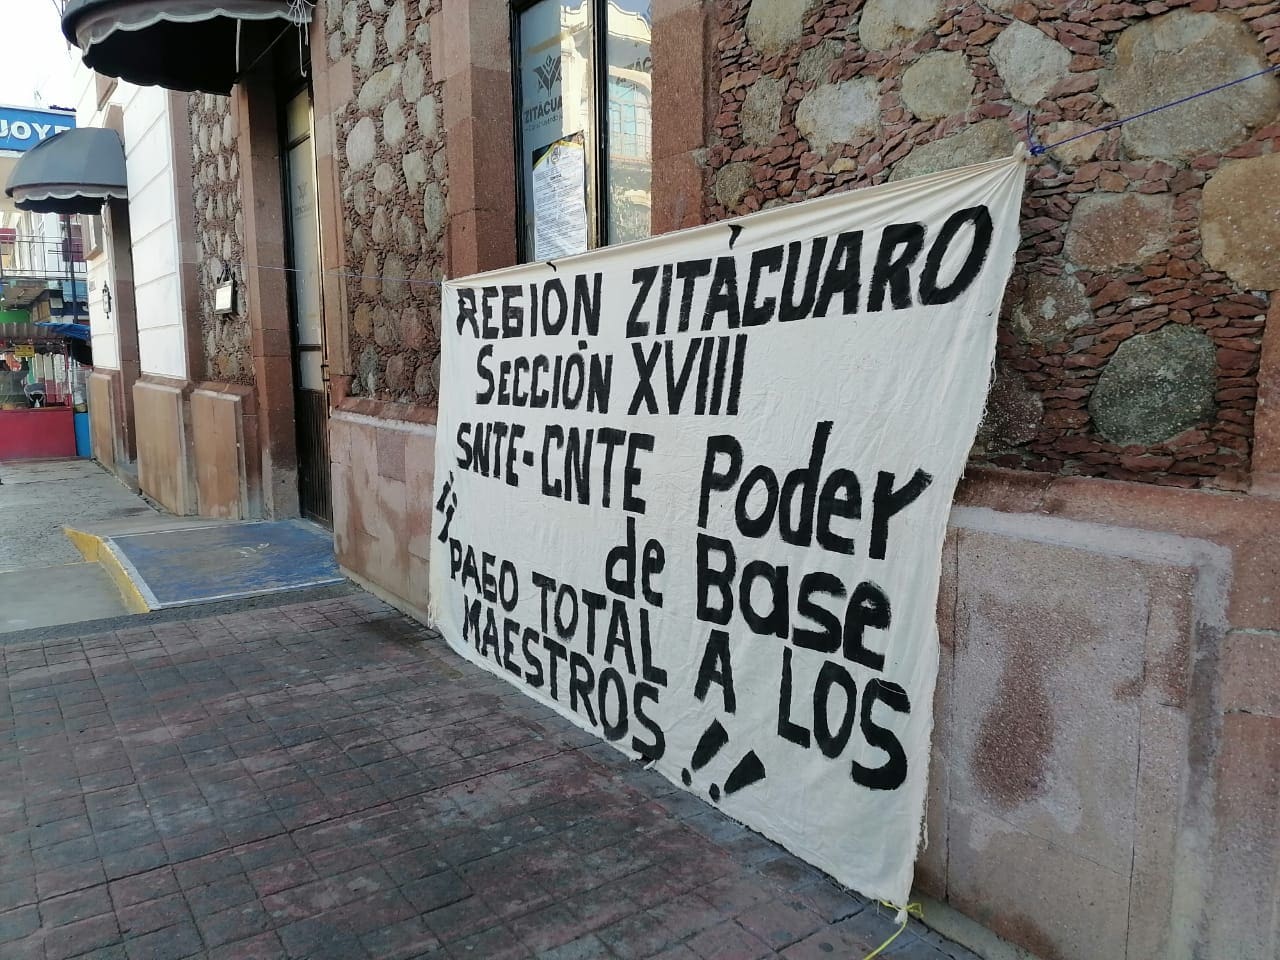 JOYE
ZITÁCUA
REGION ZITÁCUARO
SECCIÓN XVIII
SNTE-CNTE Poder
de Base
¡¡PAGO TOTAL A LOS
MAESTROS!!